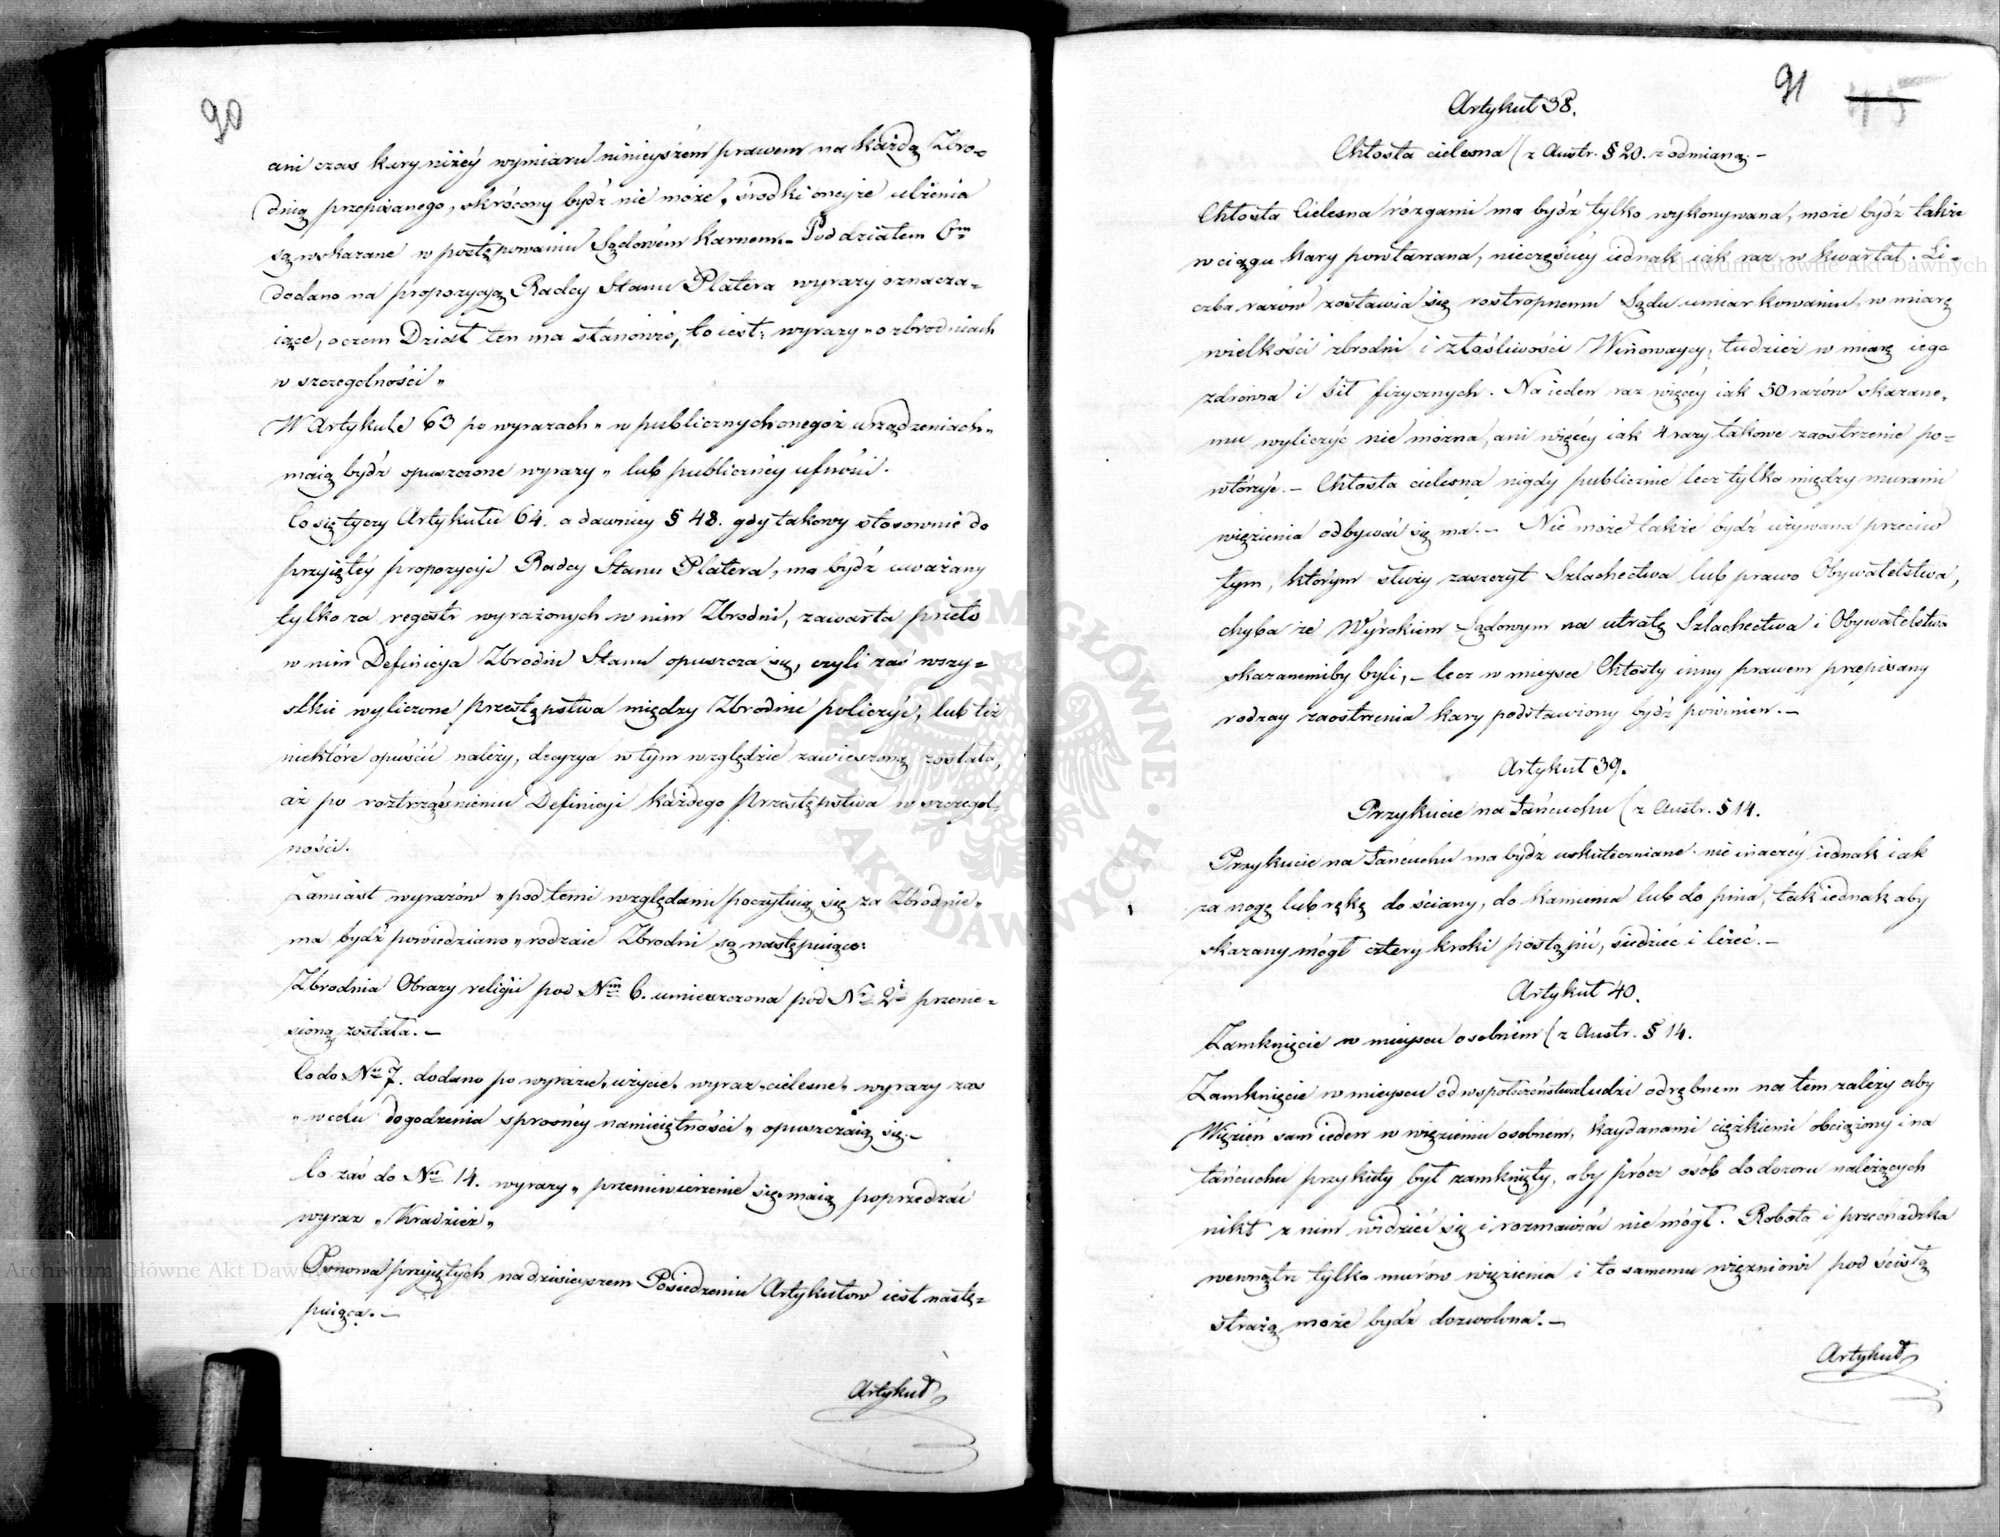 90
ani czas kary niżéy wymiaru ninieyszém prawem na każdą Zbro=
dnią przepisanego, skrócony bydź nie może, środki oneyże ulżenia
są wskazane w postępowaniu Sądowém karném.- Pod działem 6m
dodano na propozycyą Radcy Stanu Platera wyrazy oznacza=
iące, o czem Dział ten ma stanowić, to iest: wyrazy „o zbrodniach
w szczególności„
W Artykule 63 po wyrazach „w publicznych onegoż urządzeniach„
maią bydź opuszczone wyrazy „lub publicznéy ufności.
Co się tyczy Artykułu 64. a dawniey § 48. gdy takowy stosownie do
przyiętéy propozycyi Radcy Stanu Platera, ma bydź uważany
tylko za regestr wyrażonych w nim Zbrodni, zawarta przeto
w nim Definicya Zbrodni Stanu opuszcza się, czyli zaś wszy=
stkie wyliczone przestępstwa między Zbrodnie policzyć, lub też
niektóre opuścić należy, decyzya w tym względzie zawieszoną została,
aż po roztrząśnieniu Definicyi każdego Przestępstwa w szczegól
ności.
Zamiast wyrazów „pod temi względami poczytuią się za Zbrodnie„
ma bydź powiedziano „rodzaie Zbrodni są następuiące:
Zbrodnia Obrazy religii pod Nm 6. umieszczona pod Nr 2i przenie=
sioną została.—
Co do Nu 7. dodano po wyrazie „użycie„ wyraz „cielesne„ wyrazy zaś
„w celu dogodzenia sprosnéy namiętności„ opuszczaią się.—
Co zaś do Nu 14. wyrazy „przeniewierzenie się„ maią poprzedzać
wyraz „Kradzież„
Osnowa przyiętych na dzisieyszem Posiedzeniu Artykułów iest nastę=
puiąca.—
Artykuł
91
45
Artykuł 38.
Chłosta cielesna (z Austr. § 20. z odmianą.—
Chłosta Cielesna rózgami ma bydź tylko wykonywana, może bydź także
w ciągu kary powtarzana, nieczęściéy iednak iak raz w kwartał. Li=
czba razów zostawia się roztropnemu Sądu umiarkowaniu, w miarę
wielkości zbrodni i złośliwości Winowaycy, tudzież w miarę iego
zdrowia i sił fizycznych. Na ieden raz więcéy iak 50 razów skazane=
mu wyliczyć nie można, ani więcéy iak 4 razy takowe zaostrzenie po=
wtórzyć.— Chłosta cielesna nigdy publicznie lecz tylko między murami
więzienia odbywać się ma.— Nie może także bydź używana przeciw
tym, którym służy zaszczyt Szlachectwa lub prawo Obywatelstwa,
chyba że Wyrokiem Sądowym na utratę Szlachectwa i Obywatelstwa
skazanemiby byli,— lecz w mieysce Chłosty inny prawem przepisany
rodzay zaostrzenia kary podstawiony bydź powinien.—
Artykuł 39.
Przykucie na łańcuchu (z Austr. § 14.
Przykucie na łańcuchu ma bydź uskuteczniane nie inaczéy iednak iak
za nogę lub rękę do ściany, do kamienia lub do pnia, tak iednak aby
skazany mógł cztery kroki postąpić, siedzieć i leżeć.—
Artykuł 40.
Zamknięcie w mieyscu osobném (z Austr. § 14.
Zamknięcie w mieyscu od wspołeczeństwa ludzi odrębnem na tém zależy aby
Więzień sam ieden w więzieniu osobnem, kaydanami ciężkiemi obciążony i na
łańcuchu przykuty był zamknięty, aby prócz osób do dozoru należących
nikt z nim widzieć się i rozmawiać nie mógł. Robota i przechadzka
wewnątrz tylko murów więzienia i to samemu więźniowi pod ścisłą
strażą może bydź dozwolona.—
Artykuł
Archiwum Główne Akt Dawnych
Archiwum Główne Akt Dawnych
ARCHIWUM GŁÓWNE AKT DAWNYCH